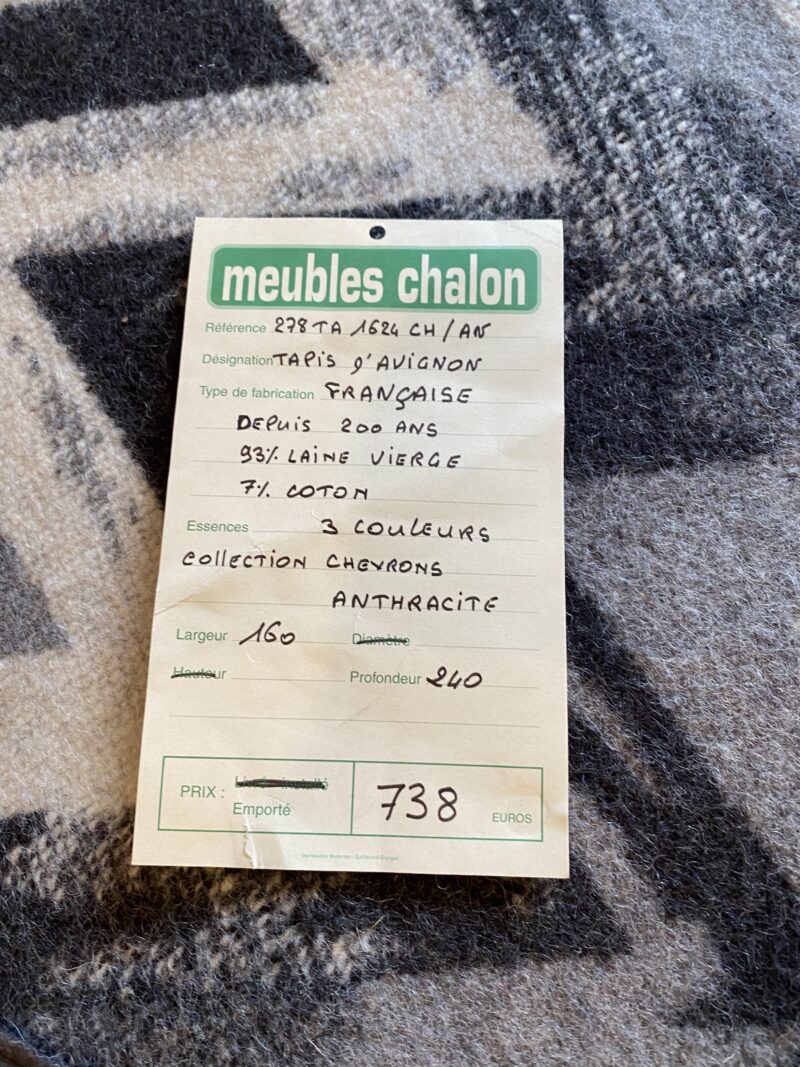 meubles chalon
Référence 278 TA 1624 CH / AN
Désignation TAPIS D'AVIGNON
Type de fabrication FRANÇAISE
DEPUIS 200 ANS
93% LAINE VIERGE
7% COTON
Essences 3 COULEURS
COLLECTION CHEVRONS
ANTHRACITE
Largeur 160 Diamètre
Hauteur Profondeur 240
PRIX : Livré installé
Emporté 738 EUROS